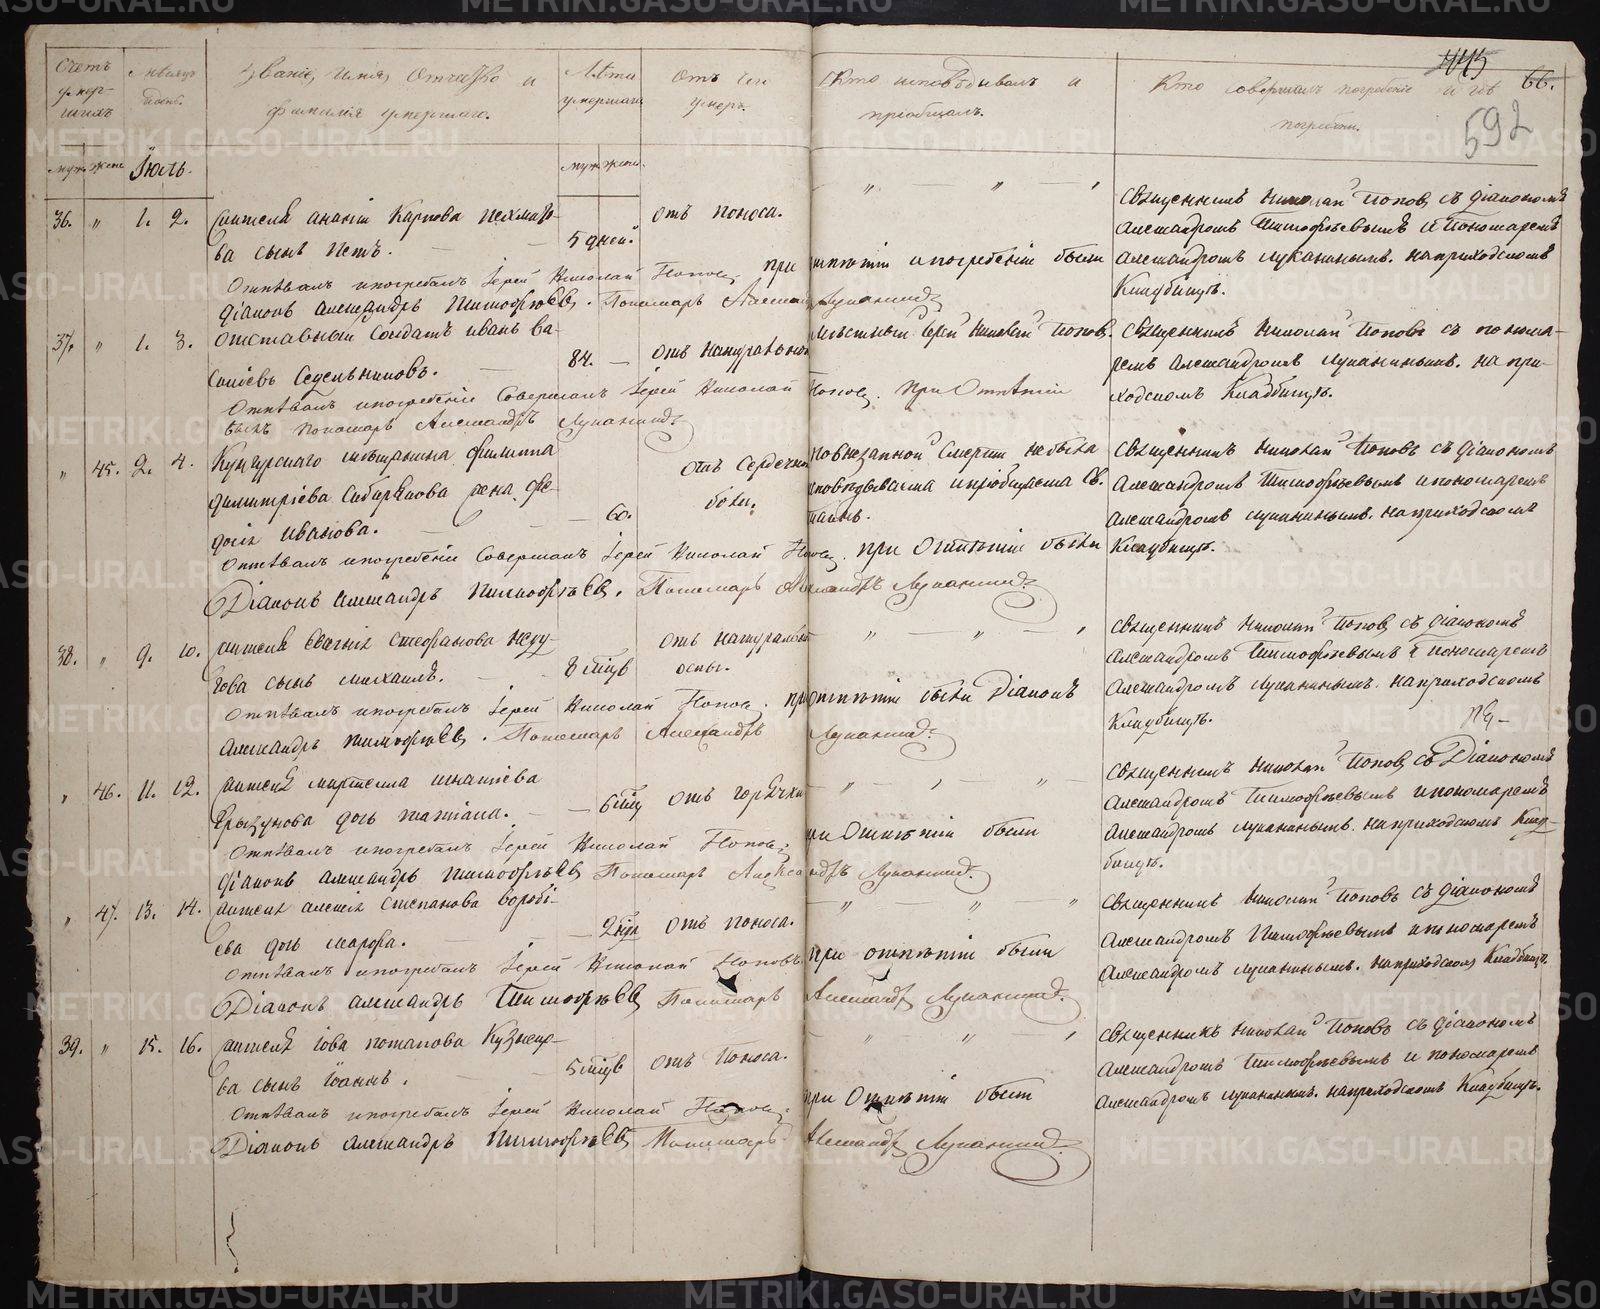 445
66.
592
Счетъ умер-
шихъ
Мѣсяцъ
и день.
Званіе, имя, отчество и
фамилія умершаго.
Лѣта
умершаго
Отъ чего
умеръ.
Кто исповѣдывалъ и
пріобщалъ.
Кто совершалъ погребеніе и гдѣ
погребены.
муж. жен.
Іюль.
муж. жен.
36. " 1. 2.
Жителя Ананіи Карпова
ва сынъ Петъ.
5 дней.
отъ поноса.
" — " — "
Священникъ Николай Поповъ, съ Діакономъ
Александромъ Тимофѣевымъ и пономаремъ
Александромъ Луканинымъ. на приходскомъ
Кладбищѣ.
Отпѣвалъ и погребалъ Іерей Николай Поповъ, при отпѣтіи и погребеніи были
Діаконъ Александръ Тимофѣевъ. Пономарь Александръ Луканинъ
37. " 1. 3.
Отставный Солдатъ Иванъ Ва-
силіевъ Седельниковъ.
84. —
отъ натуральной
мѣстный Іерей Николай Поповъ.
Священникъ Николай Поповъ съ понома-
ремъ Александромъ Луканинымъ. на при-
ходскомъ Кладбищѣ.
Отпѣвалъ и погребеніе Совершалъ Іерей Николай Поповъ. При Отпѣтіи
былъ пономарь Александръ Луканинъ
" 45. 2. 4.
Кунгурскаго мѣщанина Филиппа
Димитріева Сибирякова жена Фе-
досія Иванова.
— 60.
отъ Сердечной
боли.
по внезапной Смерти не была
исповѣдывана и пріобщена Св.
таинъ.
Священникъ Николай Поповъ съ Діакономъ
Александромъ Тимофѣевымъ и пономаремъ
Александромъ Луканинымъ. на приходскомъ
Кладбищѣ.
Отпѣвалъ и погребеніе Совершалъ Іерей Николай Поповъ. при Отпѣтіи были
Діаконъ Александръ Тимофѣевъ. Пономарь Александръ Луканинъ
38. " 9. 10.
Жителя Евагнія Стефанова
гова сынъ Михаилъ.
8 мѣцв
отъ натуральной
оспы.
" — " — "
Священникъ Николай Поповъ, съ Діакономъ
Александромъ Тимофѣевымъ и пономаремъ
Александромъ Луканинымъ. на приходскомъ
Кладбищѣ.
Отпѣвалъ и погребалъ Іерей Николай Поповъ. при отпѣтіи были Діаконъ
Александръ Тимофѣевъ. Пономарь Александръ Луканинъ
" 46. 11. 12.
Жителя Игнатіева
дочь Татіана.
— 6 мѣц
отъ горячки
" — " — " —
Священникъ Николай Поповъ, съ Діакономъ
Александромъ Тимофѣевымъ и пономаремъ
Александромъ Луканинымъ. на приходскомъ Клад-
бищѣ.
Отпѣвалъ и погребалъ Іерей Николай Поповъ при Отпѣтіи были
Діаконъ Александръ Тимофѣевъ Пономарь Александръ Луканинъ.
" 47. 13. 14.
Жителя Алексія Степанова Воробі-
ева дочь Марфа.
отъ поноса.
" — " — "
Священникъ Николай Поповъ съ Діакономъ
Александромъ Тимофѣевымъ и пономаремъ
Александромъ Луканинымъ. на приходскомъ Кладбищѣ.
Отпѣвалъ и погребалъ Іерей Николай Поповъ при отпѣтіи были
Діаконъ Александръ Тимофѣевъ Пономарь Александръ Луканинъ.
39. " 15. 16.
Жителя Іова Потапова Кузнецо-
ва сынъ Іоаннъ.
5 мѣцв
отъ Поноса.
" — " — "
Священникъ Николай Поповъ съ Діакономъ
Александромъ Тимофѣевымъ и пономаремъ
Александромъ Луканинымъ. на приходскомъ Кладбищѣ.
Отпѣвалъ и погребалъ Іерей Николай Поповъ при Отпѣтіи были
Діаконъ Александръ Тимофѣевъ Пономарь Александръ Луканинъ.
METRIKI.GASO-URAL.RU